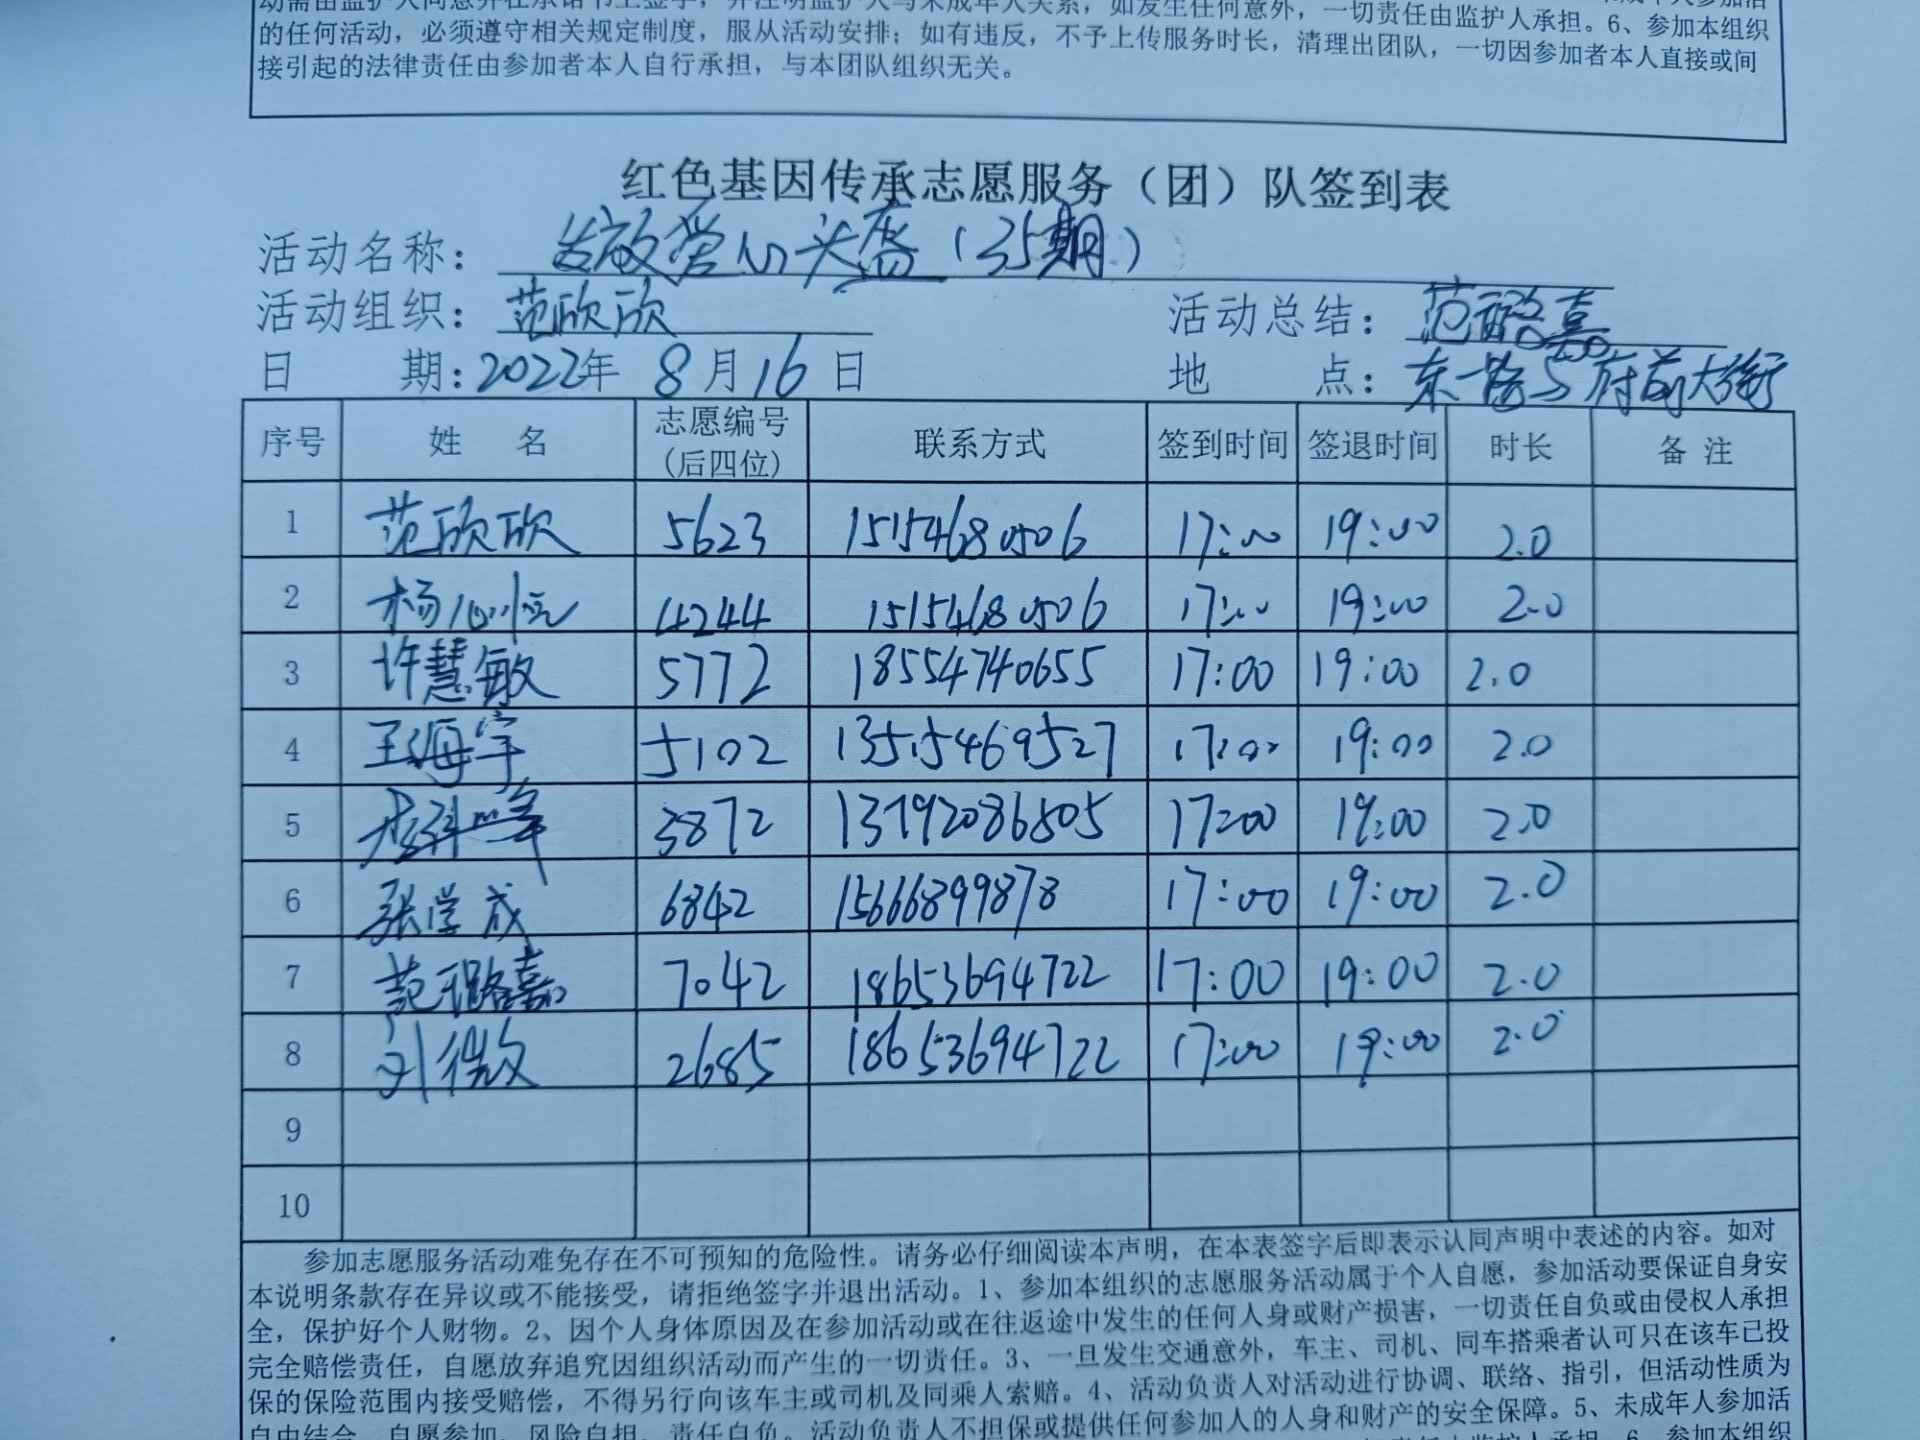 的任何活动，必须遵守相关规定制度，服从活动安排；如有违反，不予上传服务时长，清理出团队，一切因参加者本人直接或间
接引起的法律责任由参加者本人自行承担，与本团队组织无关。
红色基因传承志愿服务（团）队签到表
活动名称：发放爱心头盔（35期）
活动组织：范欣欣 活动总结：范璐嘉
日 期：2022年 8月16日 地 点：东一路与府前大街
序号 姓 名 志愿编号（后四位） 联系方式 签到时间 签退时间 时长 备 注
1 范欣欣 5623 15154680506 17:00 19:00 2.0
2 杨心恒 4244 15154680506 17:00 19:00 2.0
3 许慧敏 5772 18554740655 17:00 19:00 2.0
4 王海宇 5102 13515469527 17:00 19:00 2.0
5 3872 13792086505 17:00 19:00 2.0
6 张学成 6842 15666899878 17:00 19:00 2.0
7 范璐嘉 7042 18653694722 17:00 19:00 2.0
8 刘微 2685 18653694722 17:00 19:00 2.0
9
10
参加志愿服务活动难免存在不可预知的危险性。请务必仔细阅读本声明，在本表签字后即表示认同声明中表述的内容。如对
本说明条款存在异议或不能接受，请拒绝签字并退出活动。1、参加本组织的志愿服务活动属于个人自愿，参加活动要保证自身安
全，保护好个人财物。2、因个人身体原因及在参加活动或在往返途中发生的任何人身或财产损害，一切责任自负或由侵权人承担
完全赔偿责任，自愿放弃追究因组织活动而产生的一切责任。3、一旦发生交通意外，车主、司机、同车搭乘者认可只在该车已投
保的保险范围内接受赔偿，不得另行向该车主或司机及同乘人索赔。4、活动负责人对活动进行协调、联络、指引，但活动性质为
自由结合、自愿参加、风险自担、责任自负。活动负责人不担保或提供任何参加人的人身和财产的安全保障。5、未成年人参加活